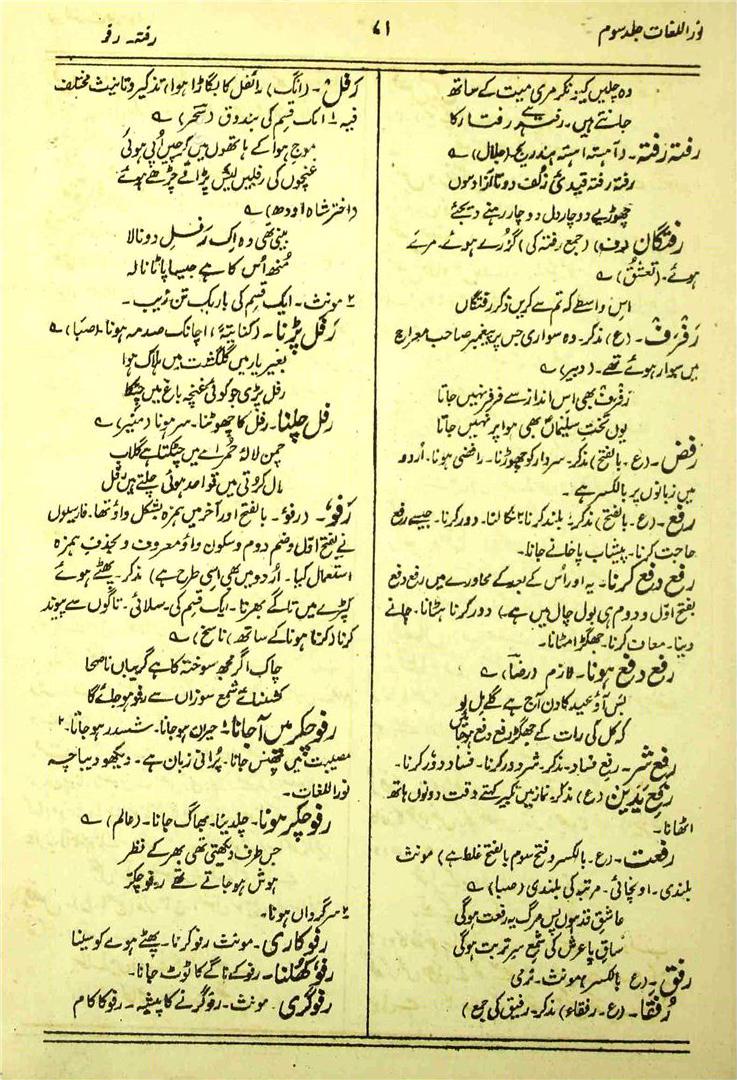 نور اللغات جلد سوم
۷۱
رفتہ ۔ رفو
وہ چلیں کیونکر مری میت کے ساتھ
جانتے ہیں۔ رفتہ رفتار کا
رفتہ رفتہ۔ (آہستہ آہستہ بتدریج (جلال) ؎
رفتہ رفتہ قیدیٔ زلف دوتا آزاد ہوں
چھوڑیے دو چار دل دو چار رہنے دیجئے
رفتگان (ف) (جمع رفتہ کی) گزرے ہوئے۔ مرے
ہوئے۔ (تعشق) ؎
اس واسطے کہ تم سے کریں ذکر رفتگاں
رفرف۔ (ع) مذکر۔ وہ سواری جس پر پیغمبر صاحب معراج
میں سوار ہوئے تھے۔ (دبیر) ؎
رفرف بھی اس انداز سے فرفر نہیں جاتا
یوں تخت سلیماں بھی ہوا پر نہیں جاتا
رفض۔ (ع۔ بالفتح) مذکر۔ سردار کو چھوڑنا۔ رافضی ہونا۔ اُردو
میں زبانوں پر بالکسر ہے۔
رفع۔ (ع۔ بالفتح) مذکر۔ ۱ بلند کرنا ۲ نکالنا۔ دور کرنا۔ جیسے رفع
حاجت کرنا۔ پیشاب پاخانے جانا۔
رفع دفع کرنا۔ یہ اور اُس کے بعد کے محاورے میں رفع دفع
بفتح اوّل و دوم ہی بول چال میں ہے) دور کرنا ہٹانا۔ جانے
دینا۔ معاف کرنا۔ جھگڑا مٹانا۔
رفع دفع ہونا۔ لازم (رضا) ؎
بس آؤ عید کا دن آج ہے گلے مل لو
کہ کل کی رات کے جھگڑے رفع دفع ہو جائیں
رفع شر۔ رفع فساد۔ مذکر۔ شر دور کرنا۔ فساد دور کرنا۔
رفع یدین (ع) مذکر۔ نماز میں تکبیر کہتے وقت دونوں ہاتھ
اٹھانا۔
رفعت۔ (ع۔ بالکسر و فتح سوم بالفتح غلط ہے) مونث
بلندی۔ اونچائی۔ مرتبہ کی بلندی (صبا) ؎
عاشق قد ہوں پس مرگ یہ رفعت ہوگی
ساق پا عرش کی شمع سر تربت ہوگی
رفق۔ (ع بالکسر) مونث۔ نرمی
رُفقا۔ (ع۔ رفقاء) مذکر۔ رفیق کی جمع)
رَفل۔ (انگ) رائفل کا بگاڑا ہوا) تذکیر و تانیث مختلف
فیہ ۱ ایک قسم کی بندوق (سحر) ؎
موج ہوا کے ہاتھوں میں کرچیں اُپی ہوئی
غنچوں کی رفلیں لیکن پڑاقے چڑھے ہوئے
(اختر شاہ اودھ) ؎
بینی تھی وہ اِک رفل دونالا
مُنھ اُس کا ہے جیسا پاٹا نالہ
۲ مونث۔ ایک قسم کی باریک تن زیب۔
رَفل پڑنا۔ (کنایۃً) اچانک صدمہ ہونا۔ (صبا) ؎
بغیر یار میں گلگشت میں ہلاک ہوا
رفل پڑی جو کوئی غنچہ باغ میں چٹکا
رفل چلنا۔ رفل کا چھوٹنا۔ سر ہونا (منیر) ؎
چمن لالۂ حمراے میں چٹکتا ہے گلاب
مال کروتی میں قواعد ہوئی چلتے ہیں رفل
رَفو۔ (رفوٴ۔ بالفتح اور آخر میں ہمزہ بشکل واؤ تھا۔ فارسیوں
نے بفتح اوّل و ضم دوم و سکون واؤ معروف و بحذف ہمزہ
استعمال کیا۔ اُردو میں بھی اِسی طرح ہے) مذکر۔ پھٹے ہوئے
کپڑے میں تاگے بھرنا۔ ایک قسم کی سلائی۔ تاگوں سے پیوند
کرنا (کرنا ہونا کے ساتھ) (ناسخ) ؎
چاک اگر مجھ سوختہ کا ہے گریباں ناصحا
رشتہائے شمع سوزاں سے رفو ہو جائے گا
رفو چکر میں آجانا۔ ۱ حیران ہو جانا۔ ششدر ہو جانا۔ ۲
مصیبت میں پھنس جانا۔ پُرانی زبان ہے۔ دیکھو دیباچہ
نور اللغات۔
رفو چکر ہونا۔ چلدینا۔ بھاگ جانا۔ (عالم) ؎
جس طرف دیکھتی تھی بھر کے نظر
ہوش ہو جاتے تھے رفو چکر
۲ سرگرداں ہونا۔
رفو کاری۔ مونث رفو کرنا۔ پھٹے ہوے کو سینا
رفو کھلنا۔ رفو کے تاگے کا ٹوٹ جانا۔
رفوگری۔ مونث۔ رفو گرنے کا پیشہ۔ رفو کا کام